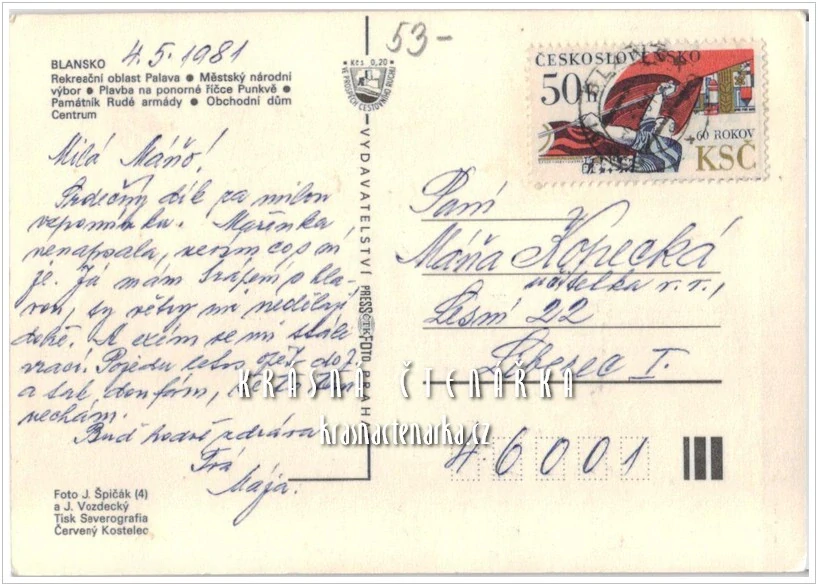 BLANSKO 4.5.1981
Rekreační oblast Palava ● Městský národní
výbor ● Plavba na ponorné říčce Punkvě ●
Památník Rudé armády ● Obchodní dům
Centrum
53-
Kčs 0,20
VE PROSPĚCH CESTOVNÍHO RUCHU
ČESKOSLOVENSKO
50 h
60 ROKOV
KSČ
Milá Máňo!
Srdečný dík za milou
vzpomínku. Mařenka
nenapsala, nevím co s ní
je. Já mám trápení s hla-
vou, ty větry mi nedělají
dobře. A exém se mi stále
vrací. Pojedu letos opět do
a tak doufám, že
nechám.
Buď hodně zdráva
Tvá
Mája.
VYDAVATELSTVÍ PRESSFOTO PRAHA
ČTK
Paní
Máňa Kopecká
učitelka v.v.,
Lesní 22
Liberec I.
46001
KRÁSNÁ ČTENÁRKA
krasnactenarka.cz
Foto J. Špičák (4)
a J. Vozdecký
Tisk Severografia
Červený Kostelec